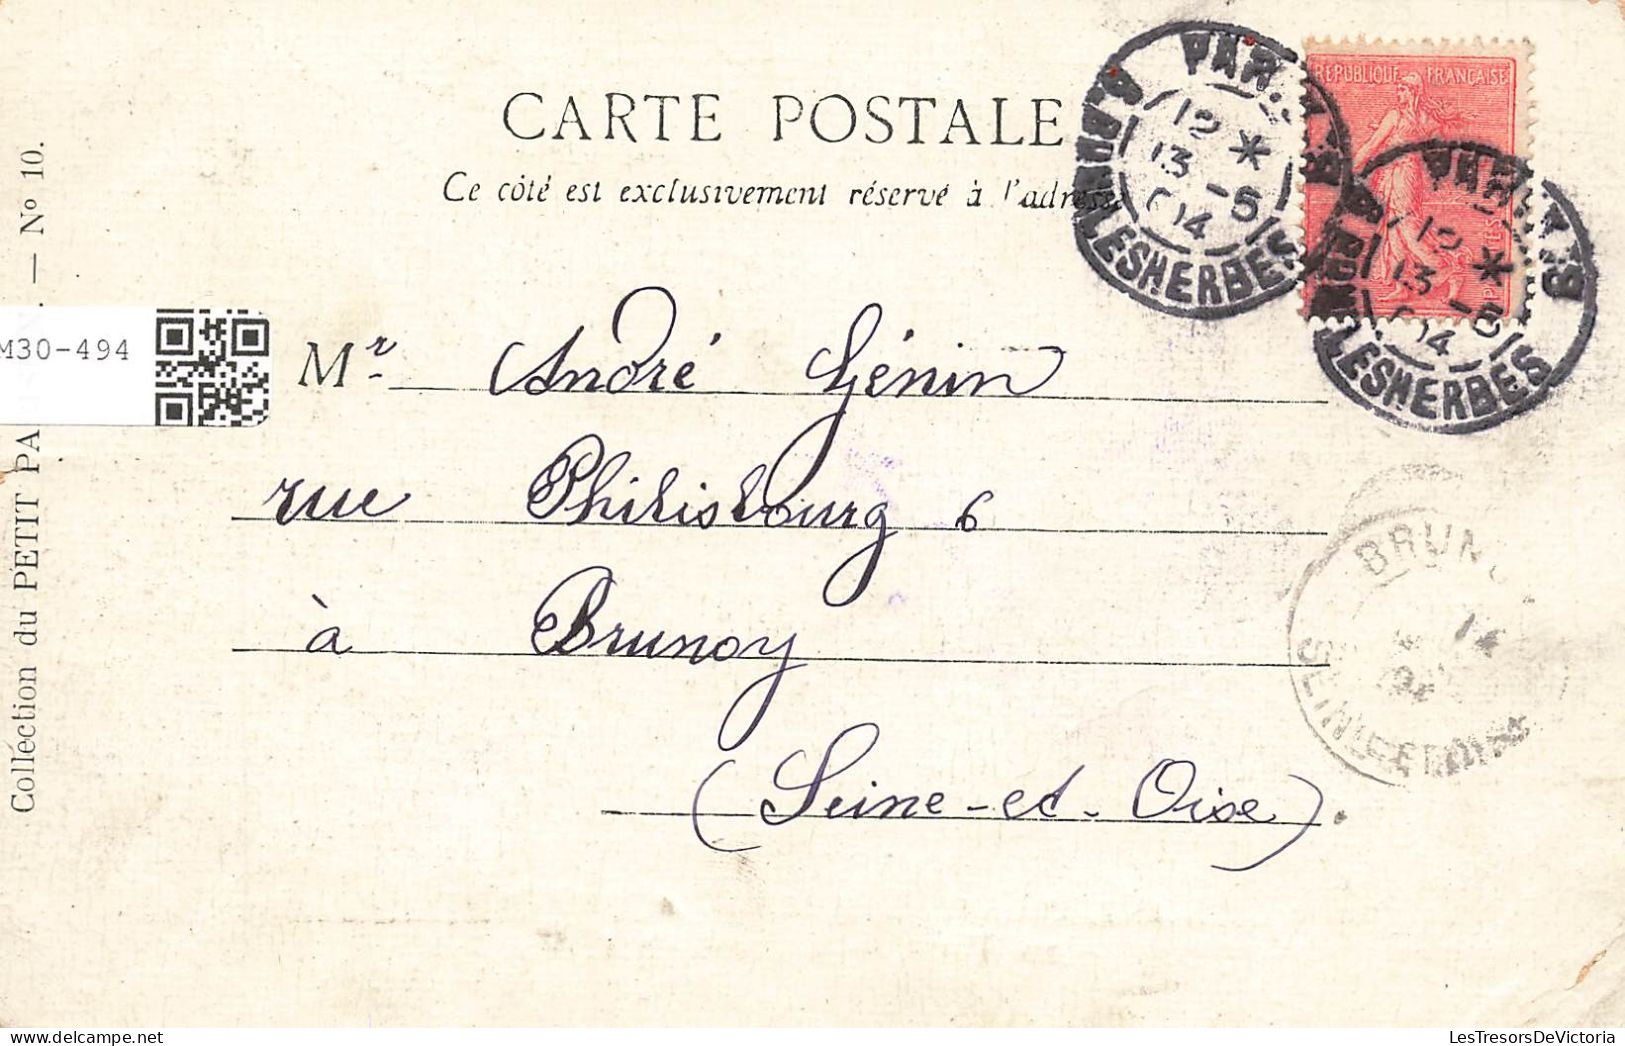 CARTE POSTALE
Ce côté est exclusivement réservé à l'adresse
RÉPUBLIQUE FRANÇAISE
PARIS
12 *
13 -5
04
MALESHERBES
PARIS
12 *
13 -5
04
LESHERBES
M30-494
Mr André Génin
rue Philisbourg 6
à Brunoy
(Seine-et-Oise).
BRUNOY
14
SEINE-ET-OISE
Collection du PETIT PA — No 10.
LesTresorsDeVictoria